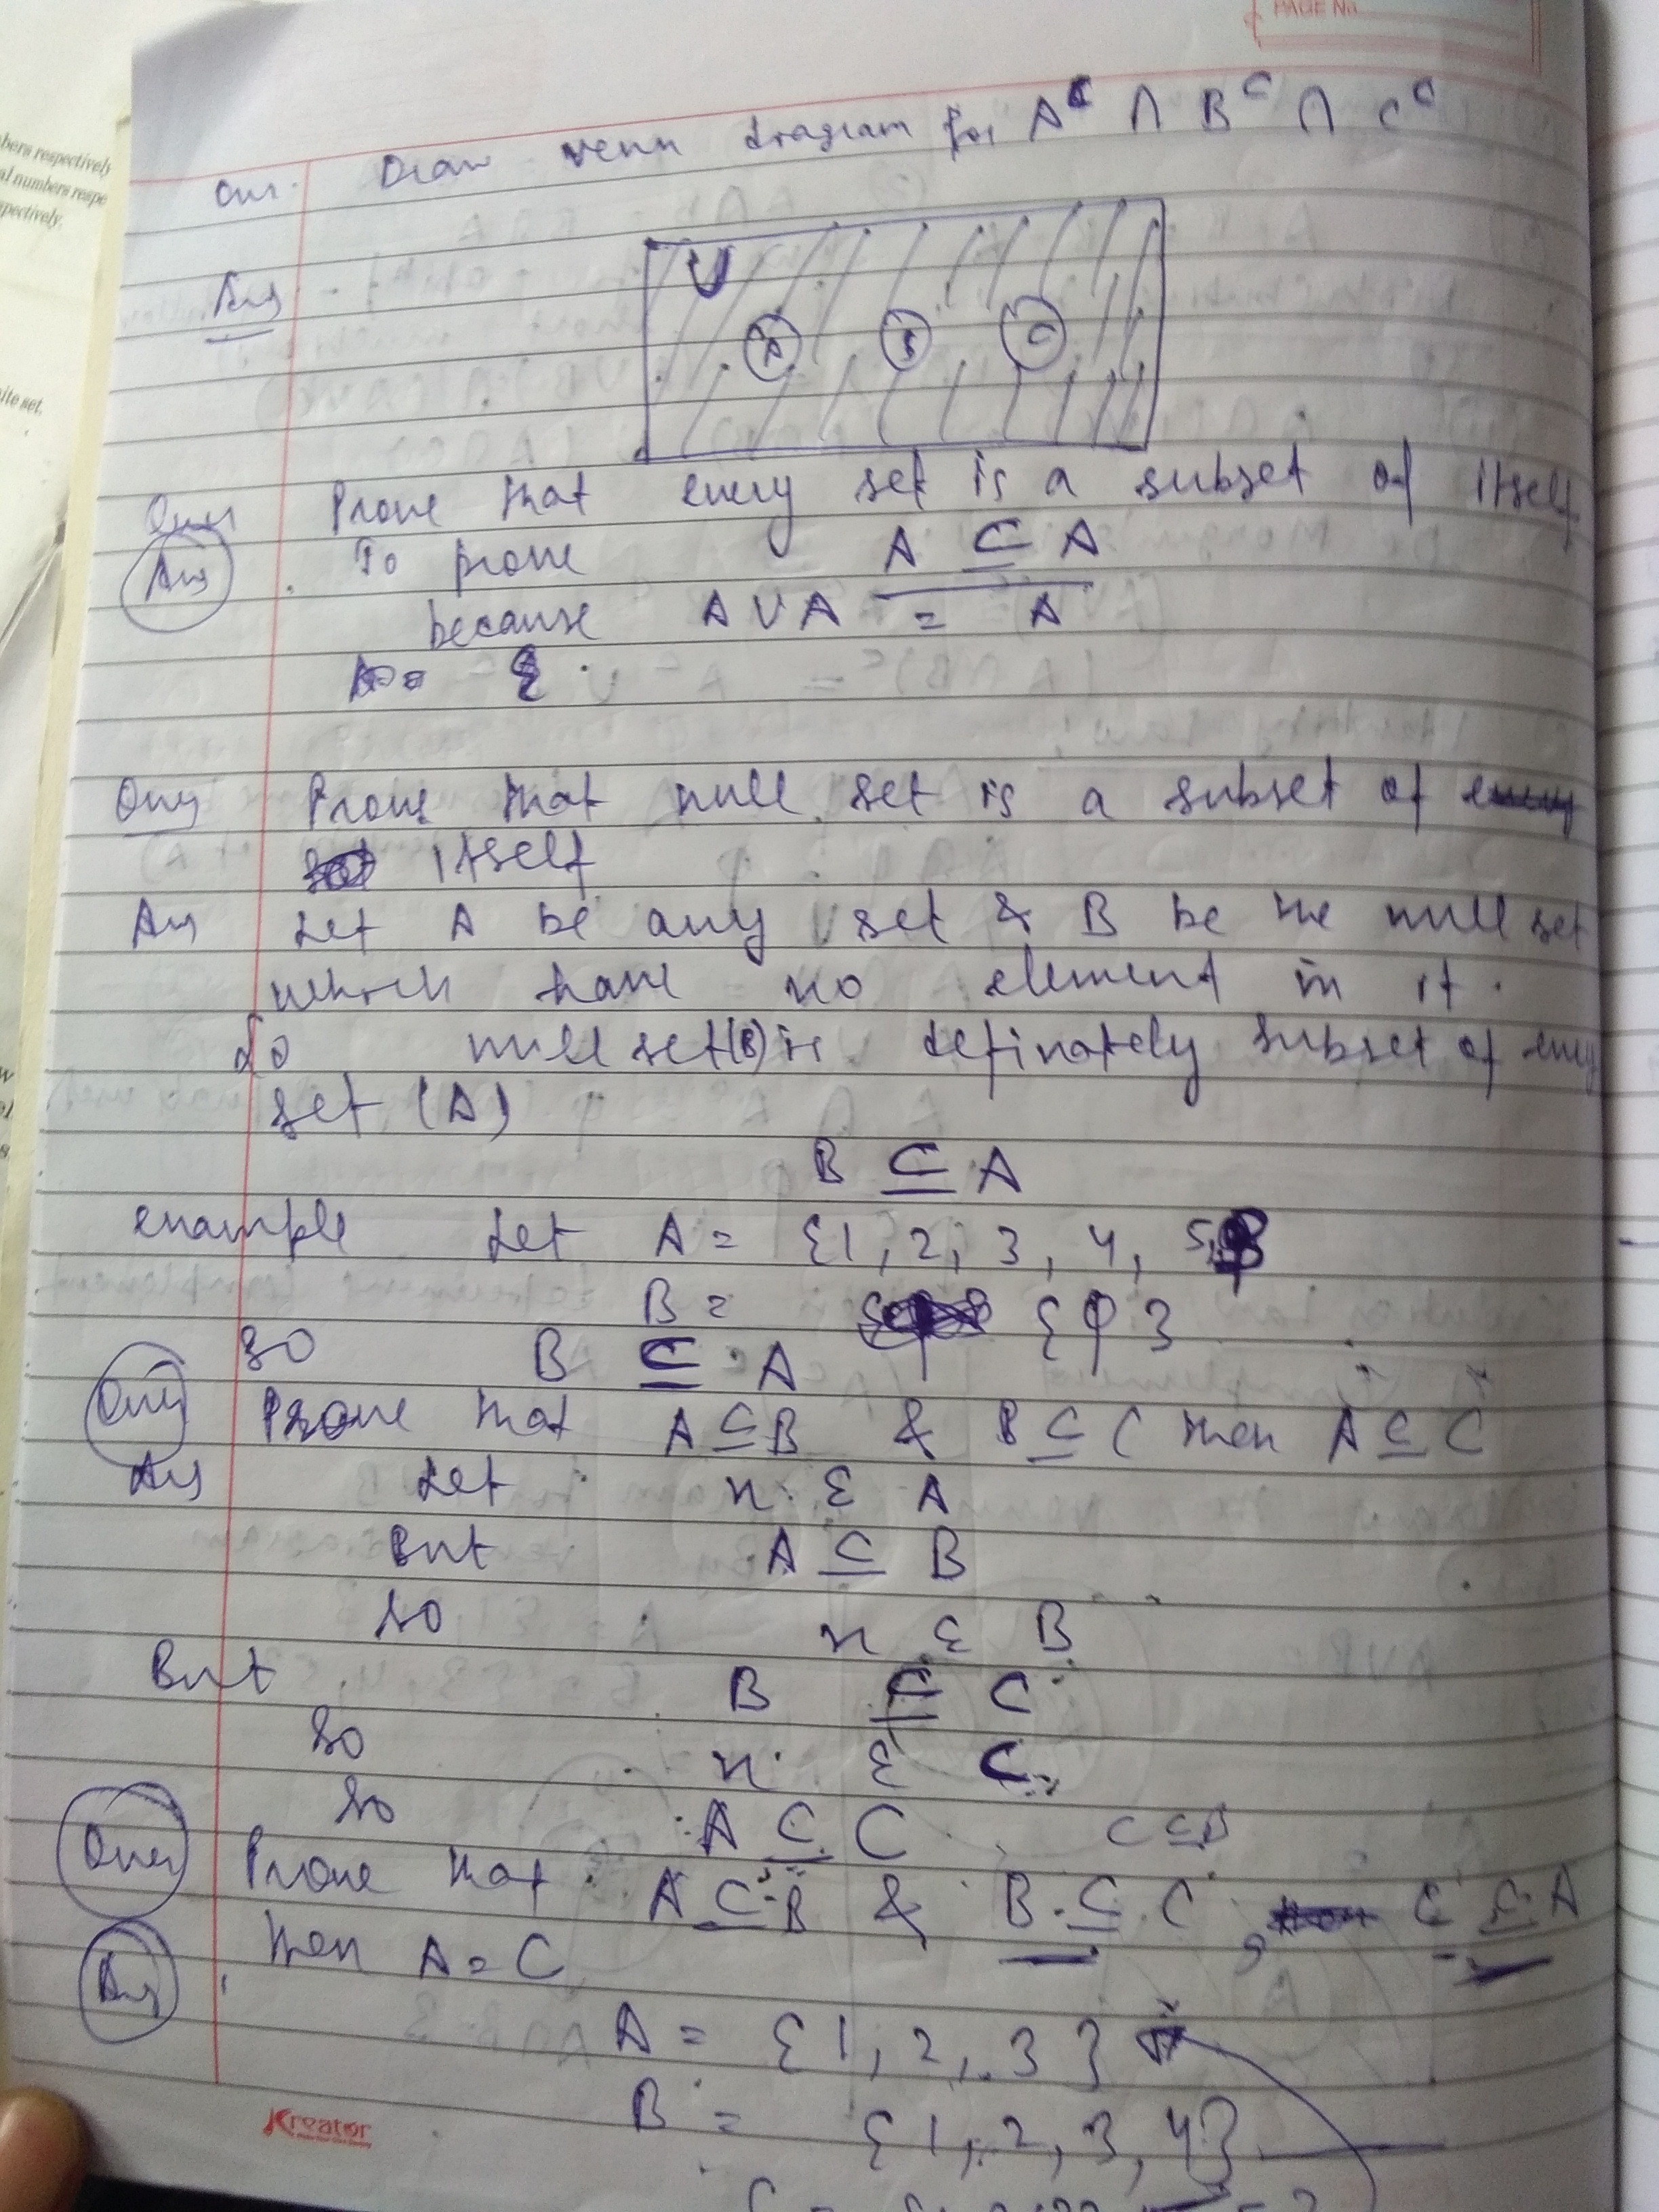 PAGE No.
bers respectively
al numbers respe
pectively.
ite set,
Ques. Draw venn diagram for A^c ∩ B^c ∩ C^c
Ans
U
A B C
Ques Prove that every set is a subset of itself.
Ans To prove A ⊆ A
because A ∪ A = A
Ques Prove that null set is a subset of
itself
Ans Let A be any set & B be the null set
which have no element in it.
So null set(B) is definately subset of every
set (A)
B ⊆ A
example Let A = {1, 2, 3, 4, 5,
B = {φ}
so B ⊆ A
Ques Prove that A ⊆ B & B ⊆ C then A ⊆ C
Ans Let x ∈ A
But A ⊆ B
so x ∈ B
But B ⊆ C
so x ∈ C
so A ⊆ C
C ⊆ B
Ques Prove that A ⊆ B & B ⊆ C, C ⊆ A
then A = C
Ans
A = {1, 2, 3}
B = {1, 2, 3, 4}
Kreator